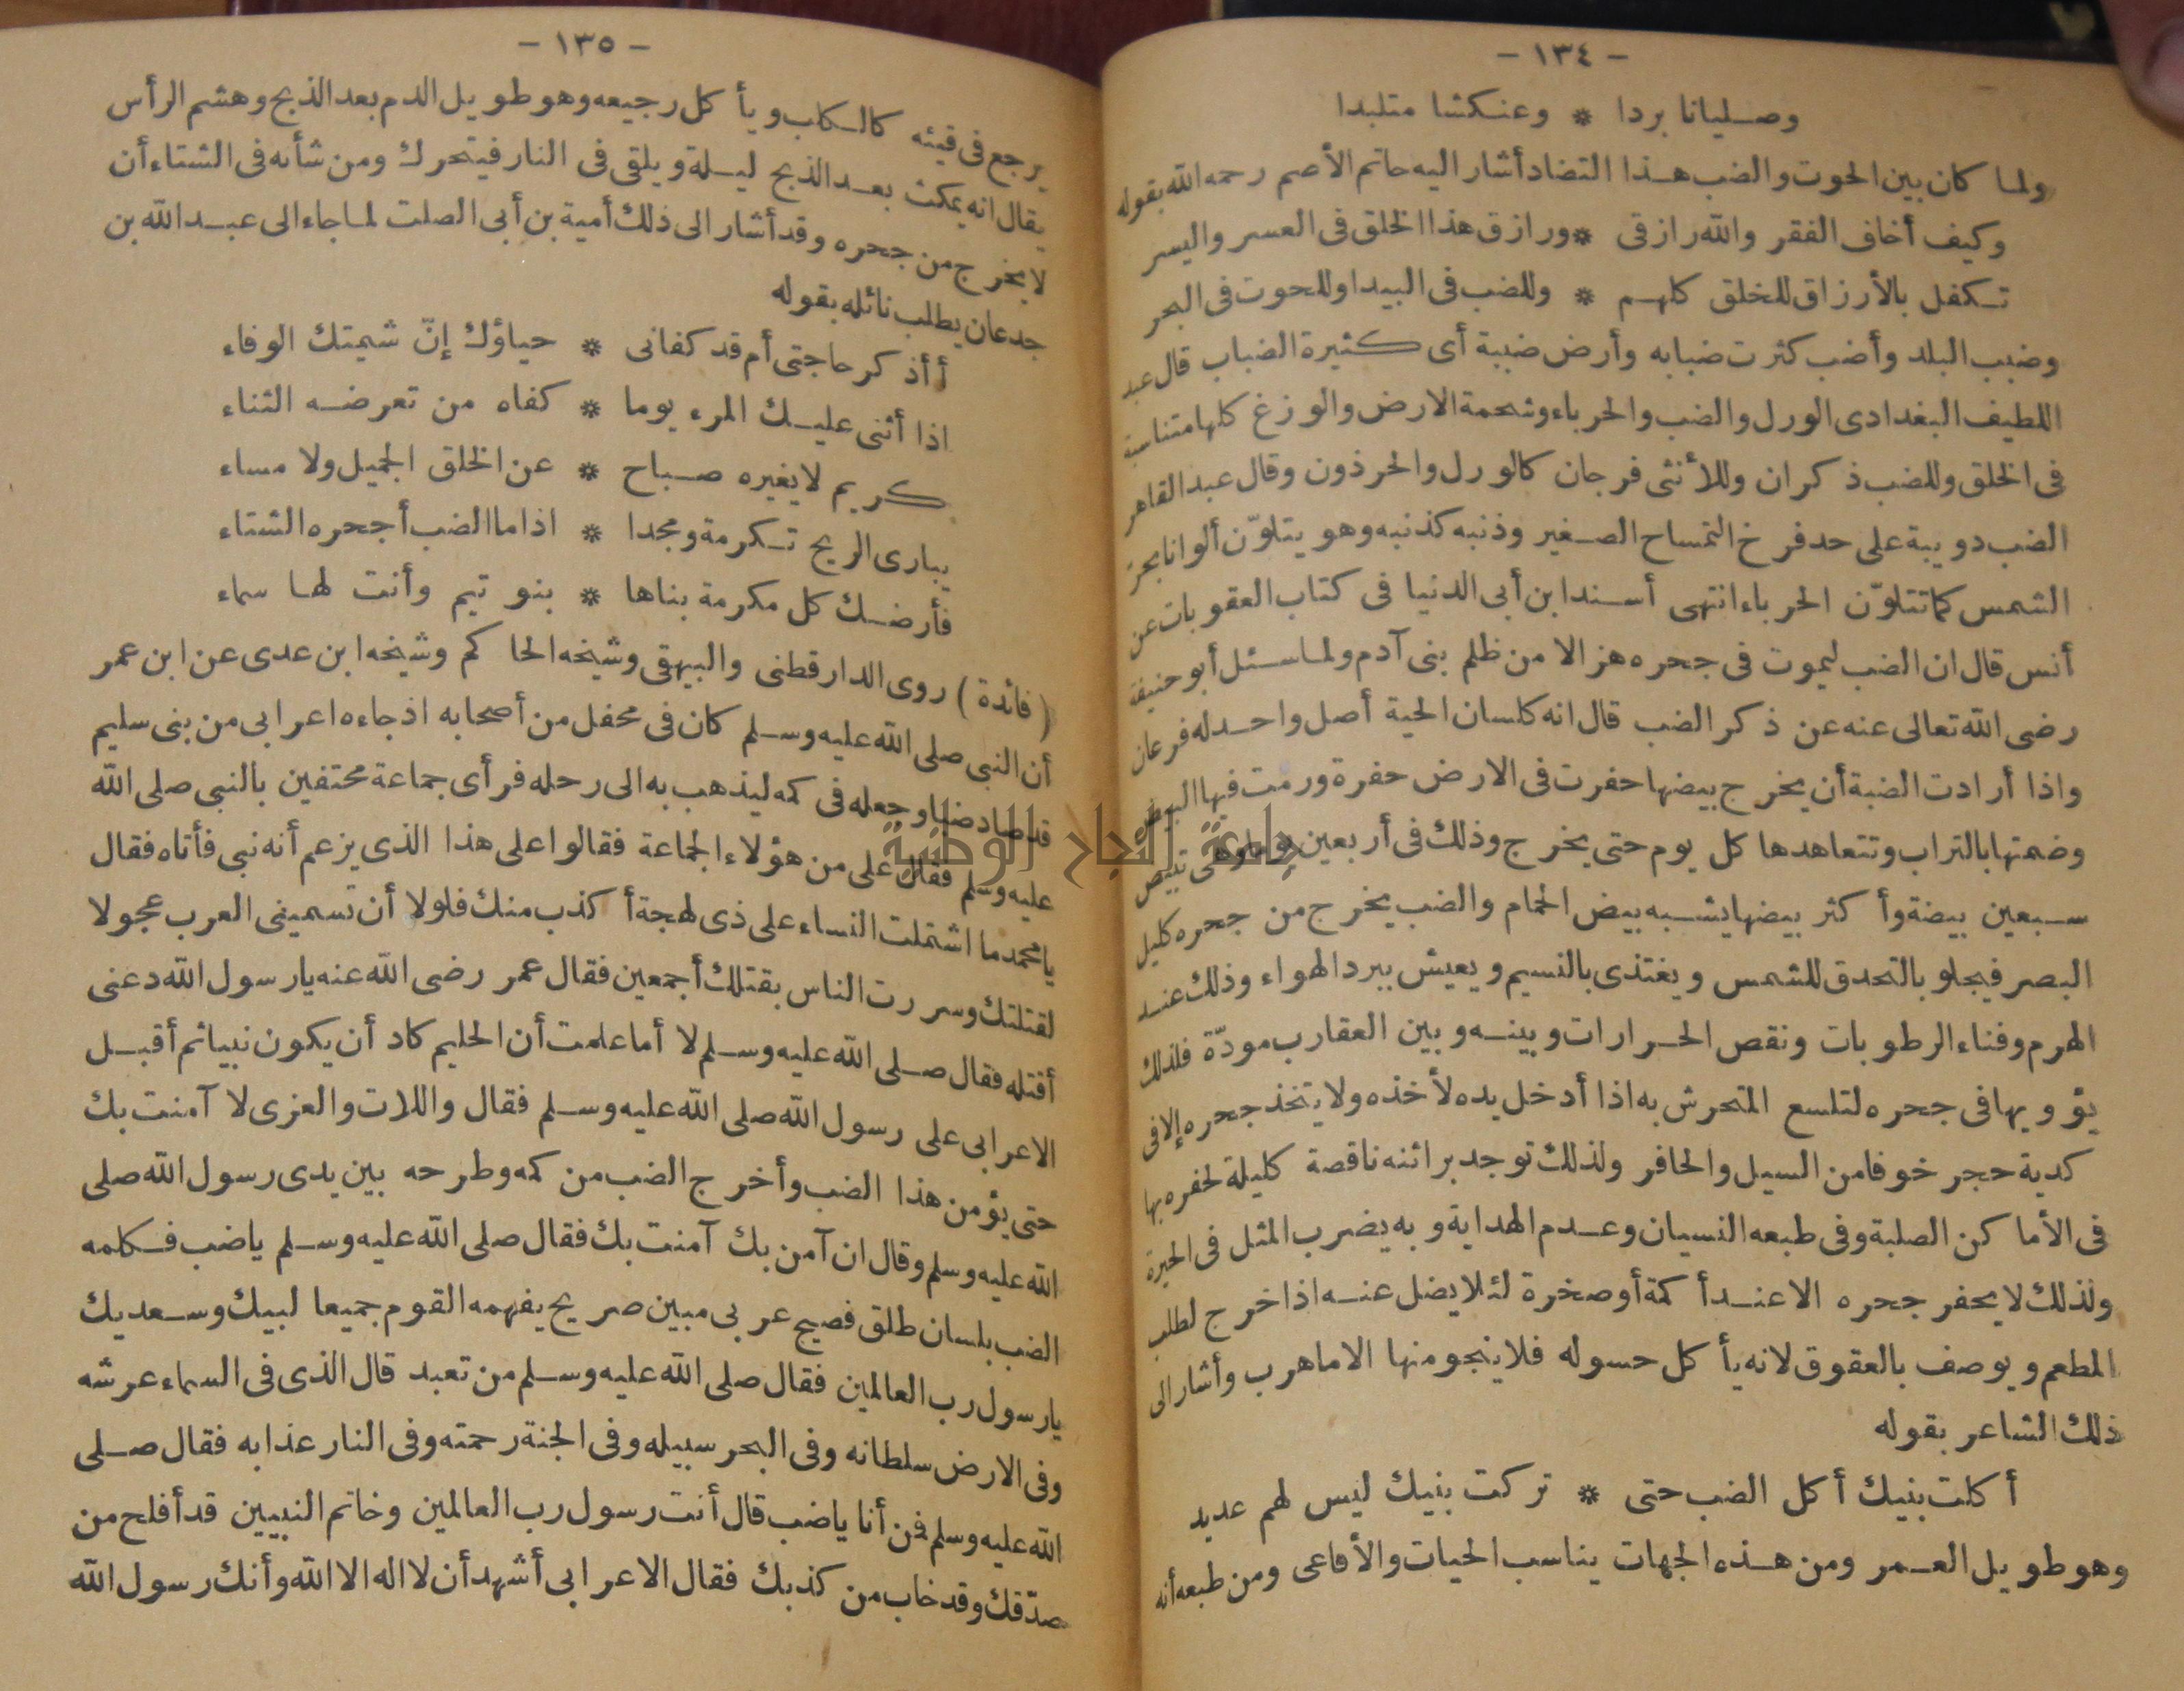 - ١٣٤ -
وصليانا بردا * وعنكشا متلبدا
ولما كان بين الحوت والضب هذا التضاد أشار اليه حاتم الأصم رحمه الله بقوله
وكيف أخاف الفقر والله رازقى * ورازق هذا الخلق فى العسر واليسر
تكفل بالأرزاق للخلق كلهم * وللضب فى البيدا وللحوت فى البحر
وضبب البلد وأضب كثرت ضبابه وأرض ضببة أى كثيرة الضباب قال عبد
اللطيف البغدادى الورل والضب والحرباء وشحمة الارض والوزغ كلها متناسبة
فى الخلق وللضب ذكران وللأنثى فرجان كالورل والحرذون وقال عبد القاهر
الضب دويبة على حد فرخ التمساح الصغير وذنبه كذنبه وهو يتلوّن ألوانا بحرّ
الشمس كما تتلوّن الحرباء انتهى أسند ابن أبى الدنيا فى كتاب العقوبات عن
أنس قال ان الضب ليموت فى جحره هزالا من ظلم بنى آدم ولما سئل أبو حنيفة
رضى الله تعالى عنه عن ذكر الضب قال انه كلسان الحية أصل واحد له فرعان
واذا أرادت الضبة أن يخرج بيضها حفرت فى الارض حفرة ورمت فيها البيض
وضمتها بالتراب وتتعاهدها كل يوم حتى يخرج وذلك فى أربعين يوما وهى تبيض
سبعين بيضة وأكثر بيضها يشبه بيض الحمام والضب يخرج من جحره كليل
البصر فيجلو بالتحدق للشمس ويغتذى بالنسيم ويعيش ببرد الهواء وذلك عند
الهرم وفناء الرطوبات ونقص الحرارات وبينه وبين العقارب مودّة فلذلك
يؤويها فى جحره لتلسع المتحرش به اذا أدخل يده لأخذه ولا يتخذ جحره إلا فى
كدية حجر خوفا من السيل والحافر ولذلك توجد براثنه ناقصة كليلة لحفره بها
فى الأماكن الصلبة وفى طبعه النسيان وعدم الهداية وبه يضرب المثل فى الحيرة
ولذلك لا يحفر جحره الا عند أكمة أو صخرة لئلا يضل عنه اذا خرج لطلب
المطعم ويوصف بالعقوق لانه يأكل حسوله فلا ينجو منها الا ما هرب وأشار الى
ذلك الشاعر بقوله
أكلت بنيك أكل الضب حتى * تركت بنيك ليس لهم عديد
وهو طويل العمر ومن هذه الجهات يناسب الحيات والأفاعى ومن طبعه أنه
- ١٣٥ -
يرجع فى قيئه كالكلب ويأكل رجيعه وهو طويل الدم بعد الذبح وهشم الرأس
يقال انه يمكث بعد الذبح ليلة ويلقى فى النار فيتحرك ومن شأنه فى الشتاء أن
لا يخرج من جحره وقد أشار الى ذلك أمية بن أبى الصلت لما جاء الى عبد الله بن
جدعان يطلب نائله بقوله
أأذكر حاجتى أم قد كفانى * حياؤك إنّ شيمتك الوفاء
اذا أثنى عليك المرء يوما * كفاه من تعرضه الثناء
كريم لا يغيره صباح * عن الخلق الجميل ولا مساء
يبارى الريح تكرمة ومجدا * اذا ما الضب أجحره الشتاء
فأرضك كل مكرمة بناها * بنو تيم وأنت لها سماء
(فائدة) روى الدارقطنى والبيهقى وشيخه الحاكم وشيخه ابن عدى عن ابن عمر
أن النبى صلى الله عليه وسلم كان فى محفل من أصحابه اذ جاءه اعرابى من بنى سليم
قد صاد ضبا وجعله فى كمه ليذهب به الى رحله فرأى جماعة محتفين بالنبى صلى الله
عليه وسلم فقال على من هؤلاء الجماعة فقالوا على هذا الذى يزعم أنه نبى فأتاه فقال
يا محمد ما اشتملت النساء على ذى لهجة أكذب منك فلولا أن تسمينى العرب عجولا
لقتلتك وسررت الناس بقتلك أجمعين فقال عمر رضى الله عنه يا رسول الله دعنى
أقتله فقال صلى الله عليه وسلم لا أما علمت أن الحليم كاد أن يكون نبيا ثم أقبل
الاعرابى على رسول الله صلى الله عليه وسلم فقال واللات والعزى لا آمنت بك
حتى يؤمن هذا الضب وأخرج الضب من كمه وطرحه بين يدى رسول الله صلى
الله عليه وسلم وقال ان آمن بك آمنت بك فقال صلى الله عليه وسلم يا ضب فكلمه
الضب بلسان طلق فصيح عربى مبين صريح يفهمه القوم جميعا لبيك وسعديك
يا رسول رب العالمين فقال صلى الله عليه وسلم من تعبد قال الذى فى السماء عرشه
وفى الارض سلطانه وفى البحر سبيله وفى الجنة رحمته وفى النار عذابه فقال صلى
الله عليه وسلم فمن أنا يا ضب قال أنت رسول رب العالمين وخاتم النبيين قد أفلح من
صدّقك وقد خاب من كذبك فقال الاعرابى أشهد أن لا اله الا الله وأنك رسول الله
جامعة النجاح الوطنية